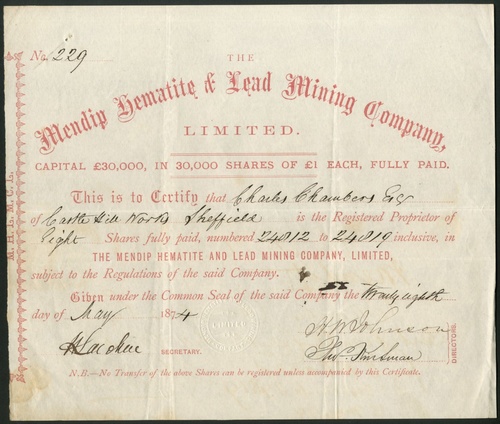 No. 229
THE
Mendip Hematite & Lead Mining Company,
LIMITED.
CAPITAL £30,000, IN 30,000 SHARES OF £1 EACH, FULLY PAID.
This is to Certify that Charles Chambers Esq
of Castle Hill Works Sheffield is the Registered Proprietor of
Eight Shares fully paid, numbered 24812 to 24819 inclusive, in
THE MENDIP HEMATITE AND LEAD MINING COMPANY, LIMITED,
subject to the Regulations of the said Company.
Given under the Common Seal of the said Company the Twenty eighth
day of May 1874
H W Johnson
SECRETARY.
DIRECTORS.
N.B.—No Transfer of the above Shares can be registered unless accompanied by this Certificate.
M. H. & L. M. C. L.